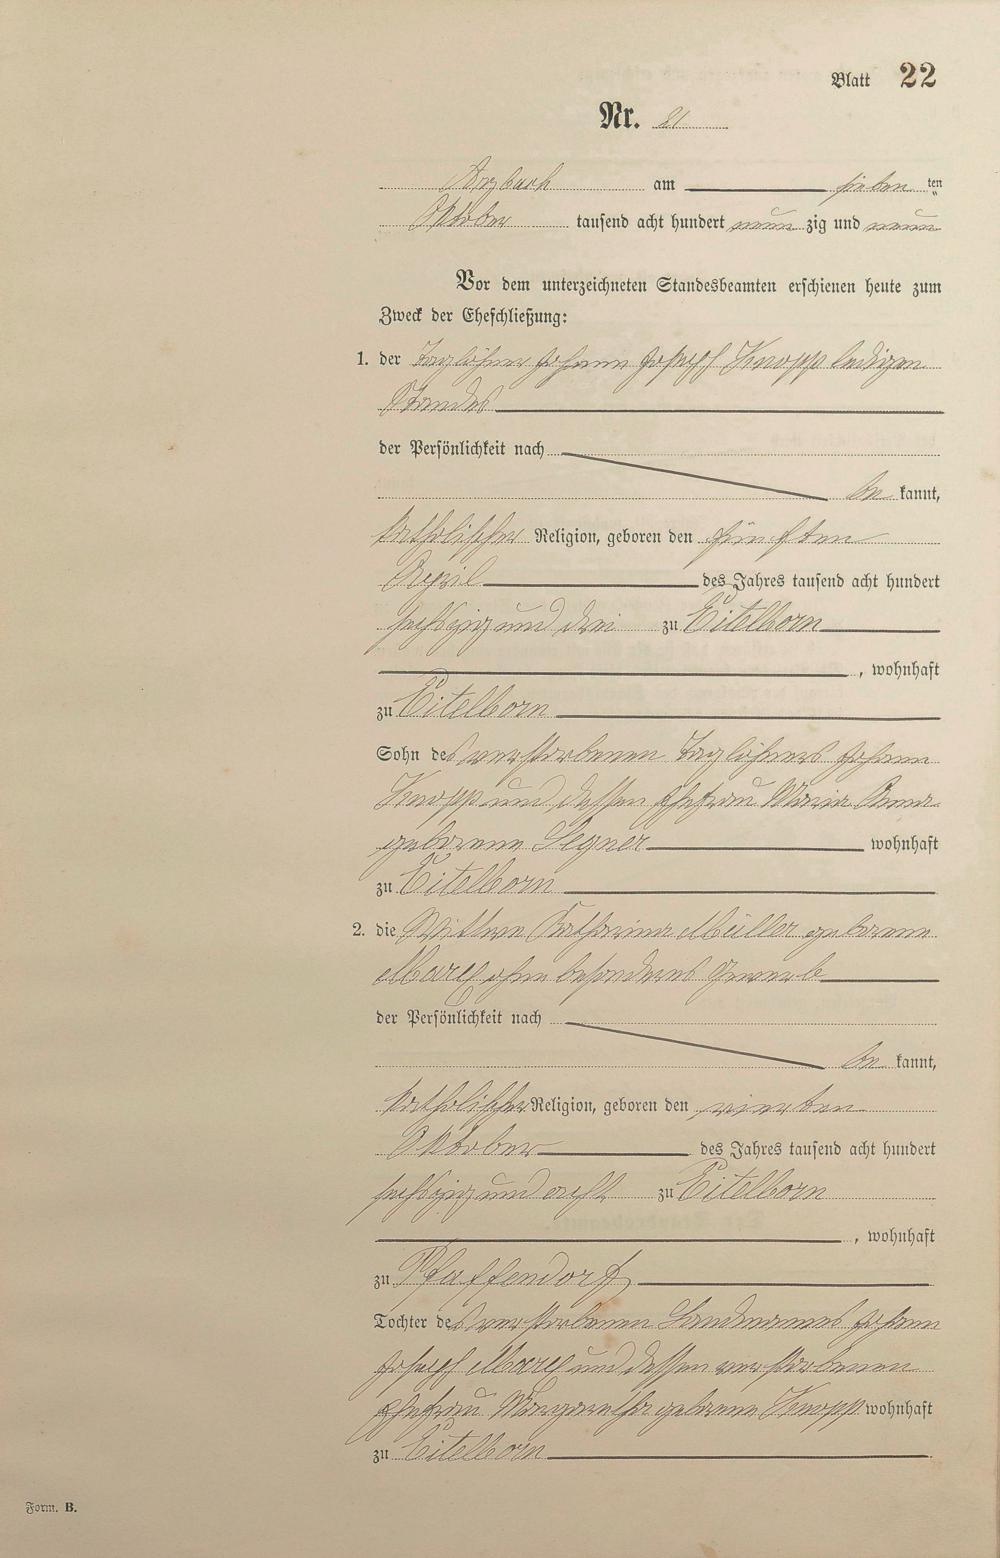 Blatt 22
Nr. 21
Arzbach am sieben ten
Oktober tausend acht hundert neun zig und neun
Vor dem unterzeichneten Standesbeamten erschienen heute zum
Zweck der Eheschließung:
1. der Taglöhner Johann Joseph Knopp ledigen
Standes
der Persönlichkeit nach
be kannt,
katholischer Religion, geboren den fünften
April des Jahres tausend acht hundert
sechszig und drei zu Eitelborn
, wohnhaft
zu Eitelborn
Sohn des verstorbenen Taglöhners Johann
Knopp und dessen Ehefrau Maria Anna
geborene Segner wohnhaft
zu Eitelborn
2. die Wittwe Katharina Müller geborene
ohne besonderes Gewerb
der Persönlichkeit nach
be kannt,
katholischer Religion, geboren den vierten
Oktober des Jahres tausend acht hundert
sechszig und acht zu Eitelborn
, wohnhaft
zu Pfaffendorf
Tochter des verstorbenen Landmannes Johann
Joseph und dessen verstorbenen
Ehefrau Margaretha geborene Knopp wohnhaft
zu Eitelborn
Form. B.